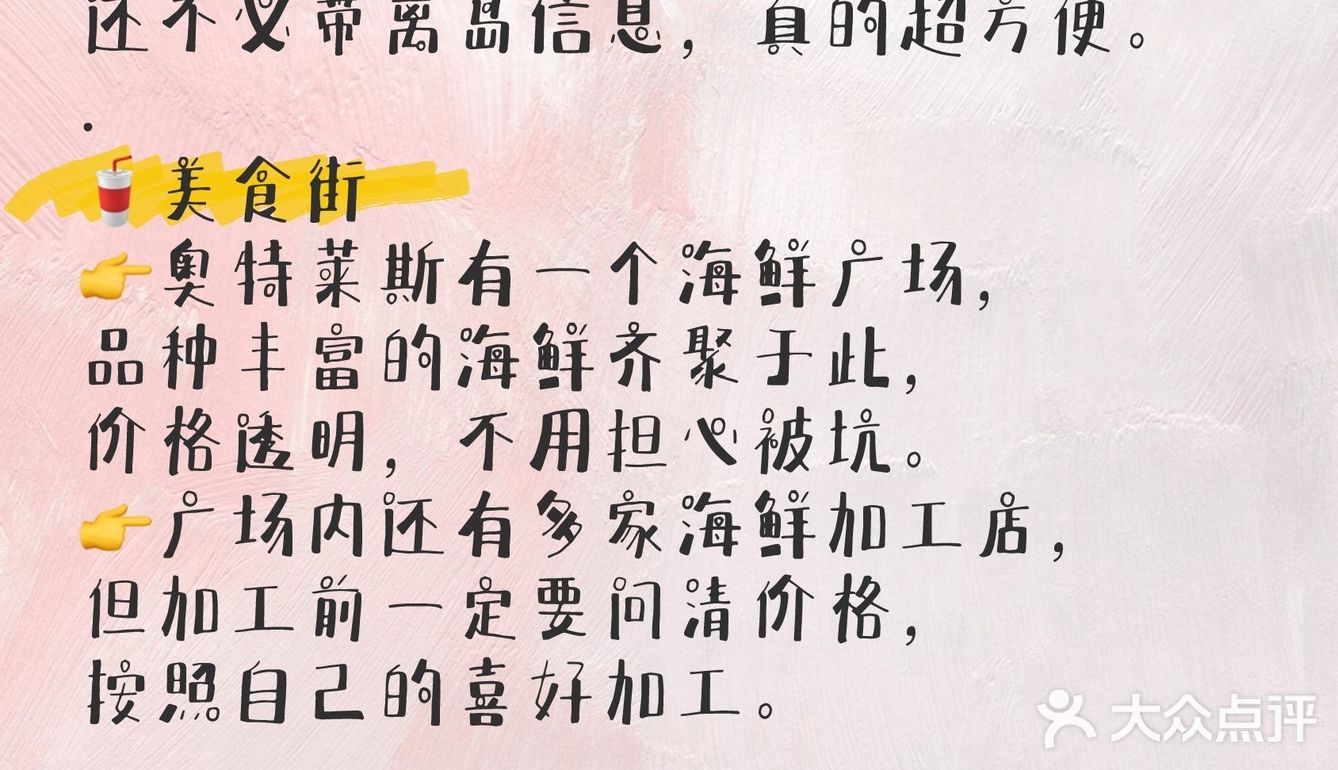 还不必带离岛信息，真的超方便。
.
美食街
奥特莱斯有一个海鲜广场，
品种丰富的海鲜齐聚于此，
价格透明，不用担心被坑。
广场内还有多家海鲜加工店，
但加工前一定要问清价格，
按照自己的喜好加工。
大众点评